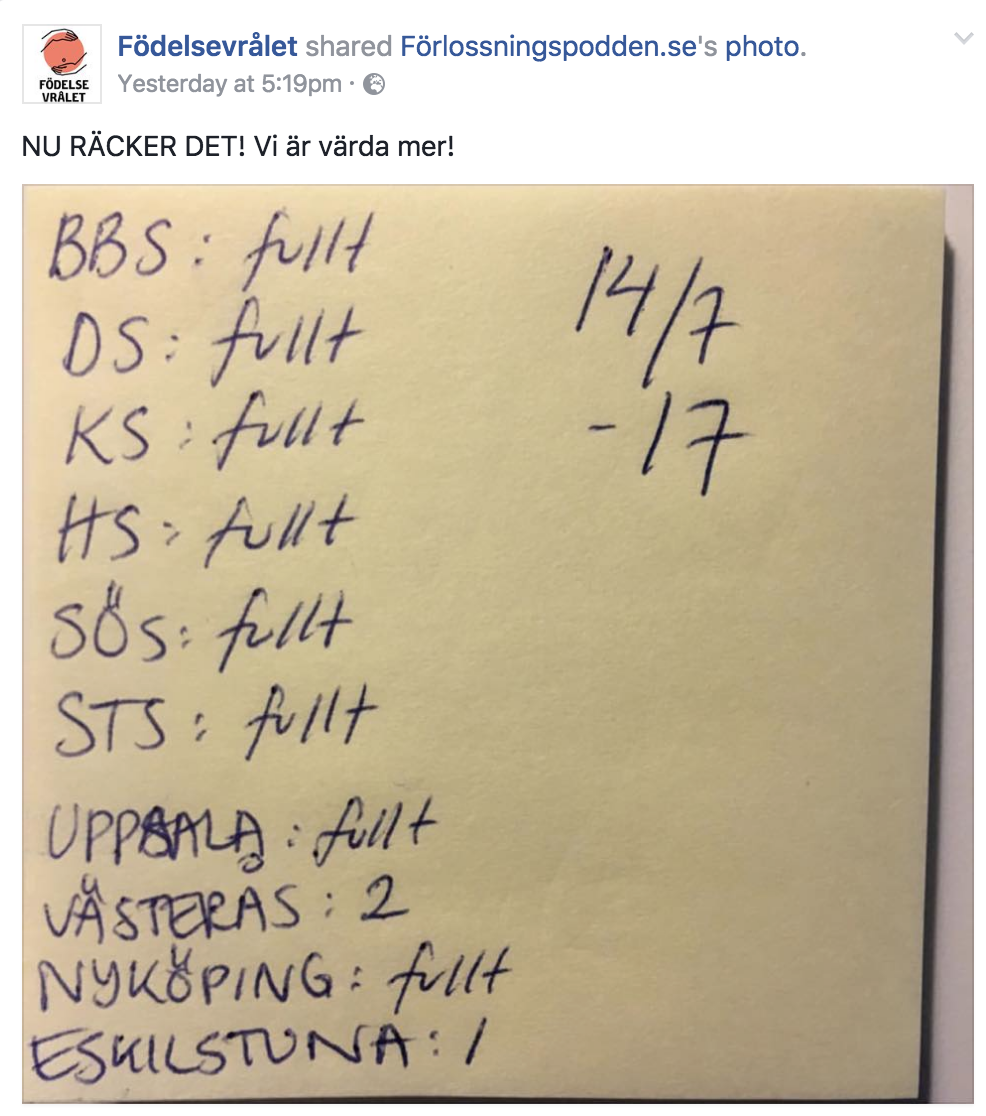 FÖDELSE
VRÅLET
Födelsevrålet shared Förlossningspodden.se's photo.
Yesterday at 5:19pm ·
NU RÄCKER DET! Vi är värda mer!
BBS: fullt
14/7
-17
DS: fullt
KS: fullt
HS: fullt
SÖS: fullt
STS: fullt
UPPSALA: fullt
VÄSTERÅS: 2
NYKÖPING: fullt
ESKILSTUNA: 1